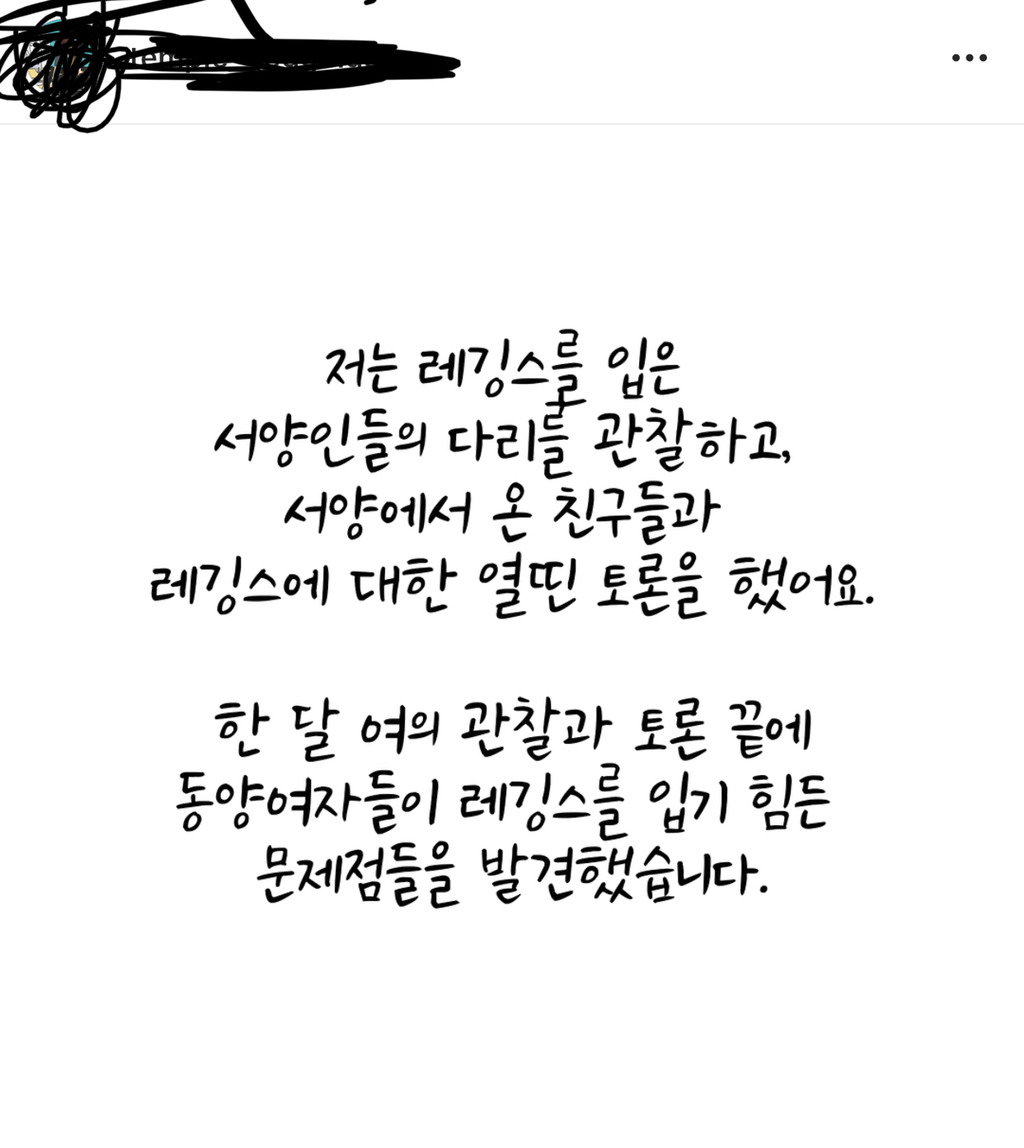 저는 레깅스를 입은
서양인들의 다리를 관찰하고,
서양에서 온 친구들과
레깅스에 대한 열띤 토론을 했어요.
한 달 여의 관찰과 토론 끝에
동양여자들이 레깅스를 입기 힘든
문제점들을 발견했습니다.